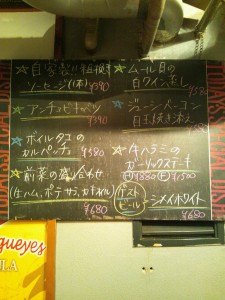 自家製 粗挽き
ソーセージ(1本) ¥390
アンチョビキャベツ
¥390
ボイルタコの
カルパッチョ ¥580
前菜の盛り合わせ
(生ハム、ポテサラ、カポナータ)
¥680
ムール貝の
白ワイン蒸し
¥580
ジューシーベーコン
目玉焼き添え
¥580
牛ハラミの
ガーリックステーキ
¥1500
ゲスト
ビール
シメイホワイト
¥680
gueyes